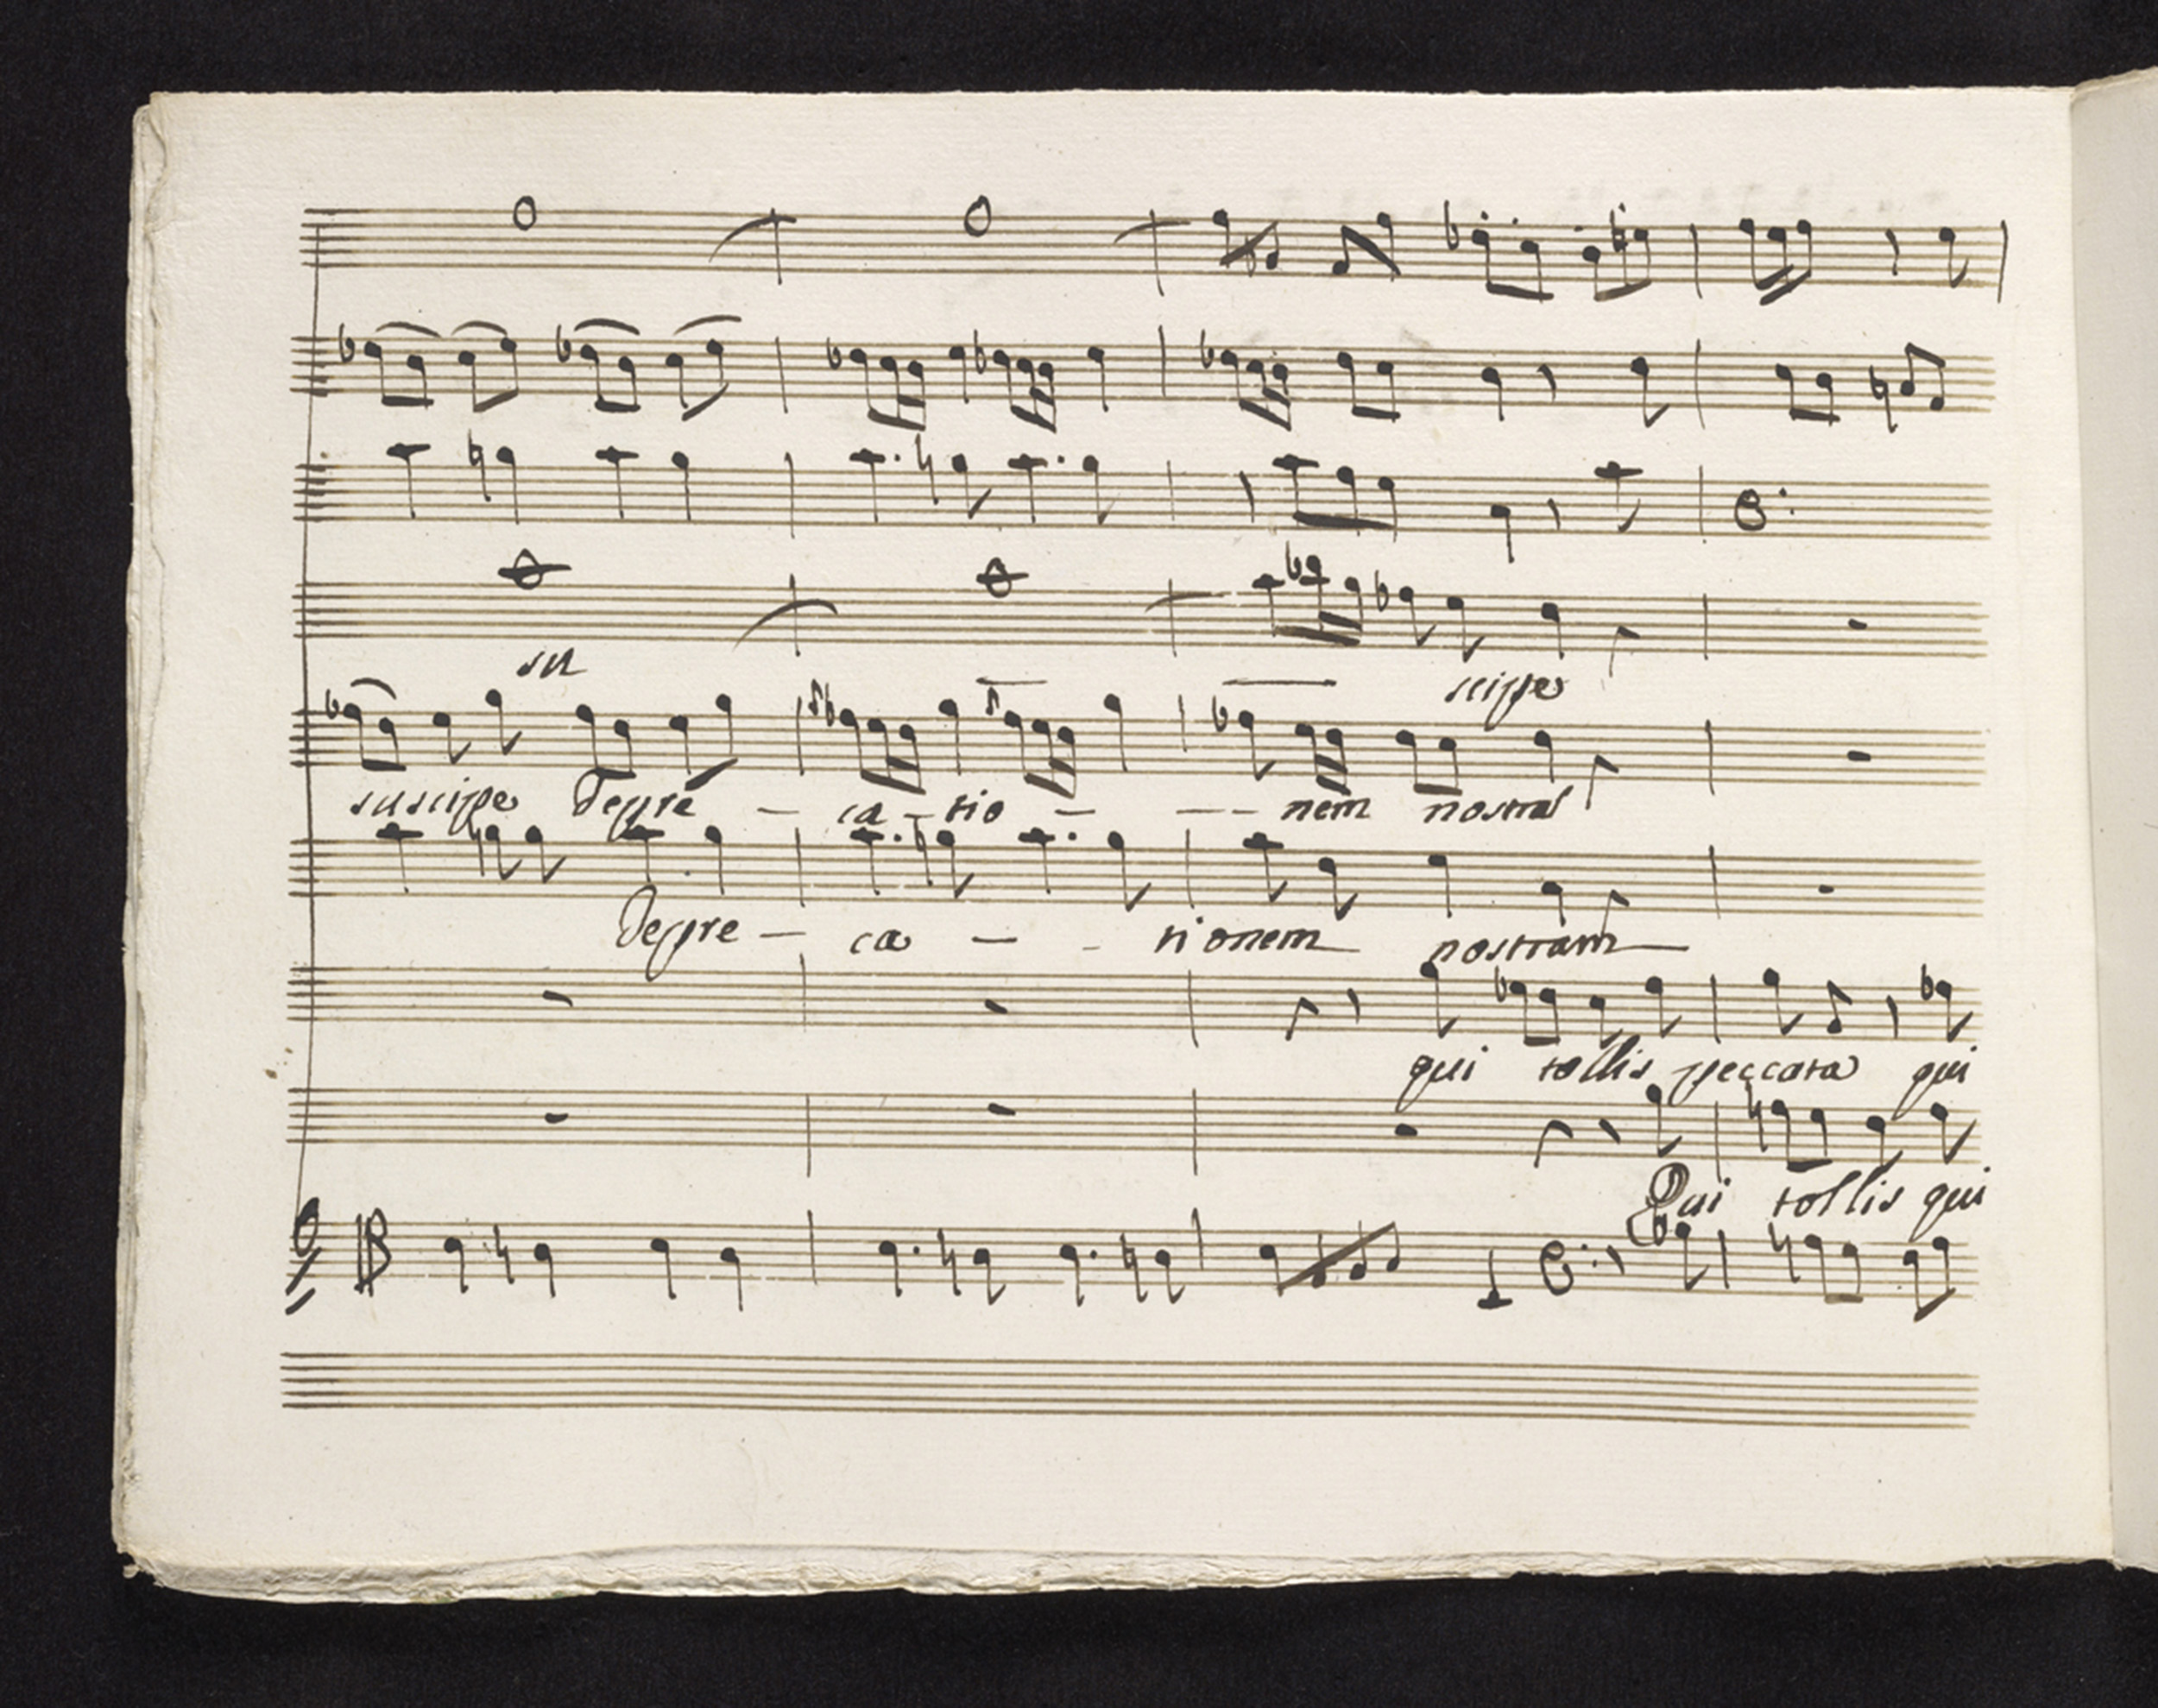 su scipe
suscipe Depre - ca - tio - - - nem nostra
Depre - ca - - tionem nostram
qui tollis peccata qui
Qui tollis qui